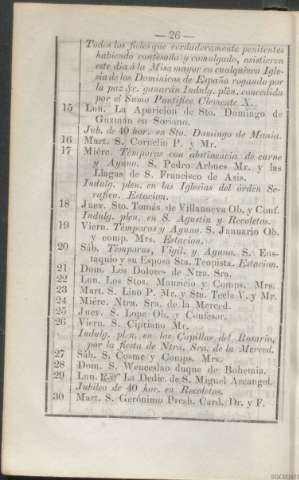 — 26 —
Todos los fieles que verdaderamente penitentes
habiendo confesado y comulgado, asistieren
este dia á la Misa mayor en cualquiera Igle-
sia de los Dominicos de España rogando por
la paz &c. ganarán Indulg. plen. concedida
por el Sumo Pontífice Clemente X.
15 Lun. La Aparicion de Sto. Domingo de
Guzman en Soriano.
Jub. de 40 hor. en Sto. Domingo de Manila.
16 Mart. S. Cornelio P. y Mr.
17 Miérc. Témporas con abstinencia de carne
y Ayuno. S. Pedro Arbues Mr. y las
Llagas de S. Francisco de Asis.
Indulg. plen. en las Iglesias del órden Se-
ráfico. Estacion.
18 Juev. Sto. Tomás de Villanueva Ob. y Conf.
Indulg. plen. en S. Agustin y Recoletos.
19 Viern. Témporas y Ayuno. S. Januario Ob.
y comp. Mrs. Estacion.
20 Sáb. Témporas, Vigil. y Ayuno. S. Eus-
taquio y su Esposa Sta. Teopista. Estacion.
21 Dom. Los Dolores de Ntra. Sra.
22 Lun. Los Stos. Mauricio y Comps. Mrs.
23 Mart. S. Lino P. Mr. y Sta. Tecla V. y Mr.
24 Miérc. Ntra. Sra. de la Merced.
25 Juev. S. Lope Ob. y Confesor.
26 Viern. S. Cipriano Mr.
Indulg. plen. en las Capillas del Rosario,
por la fiesta de Ntra. Sra. de la Merced.
27 Sáb. S. Cosme y Comps. Mrs.
28 Dom. S. Wenceslao duque de Bohemia.
29 Lun. La Dedic. de S. Miguel Arcangel.
Jubileo de 40 hor. en Recoletos.
30 Mart. S. Gerónimo Presb. Card. Dr. y F.